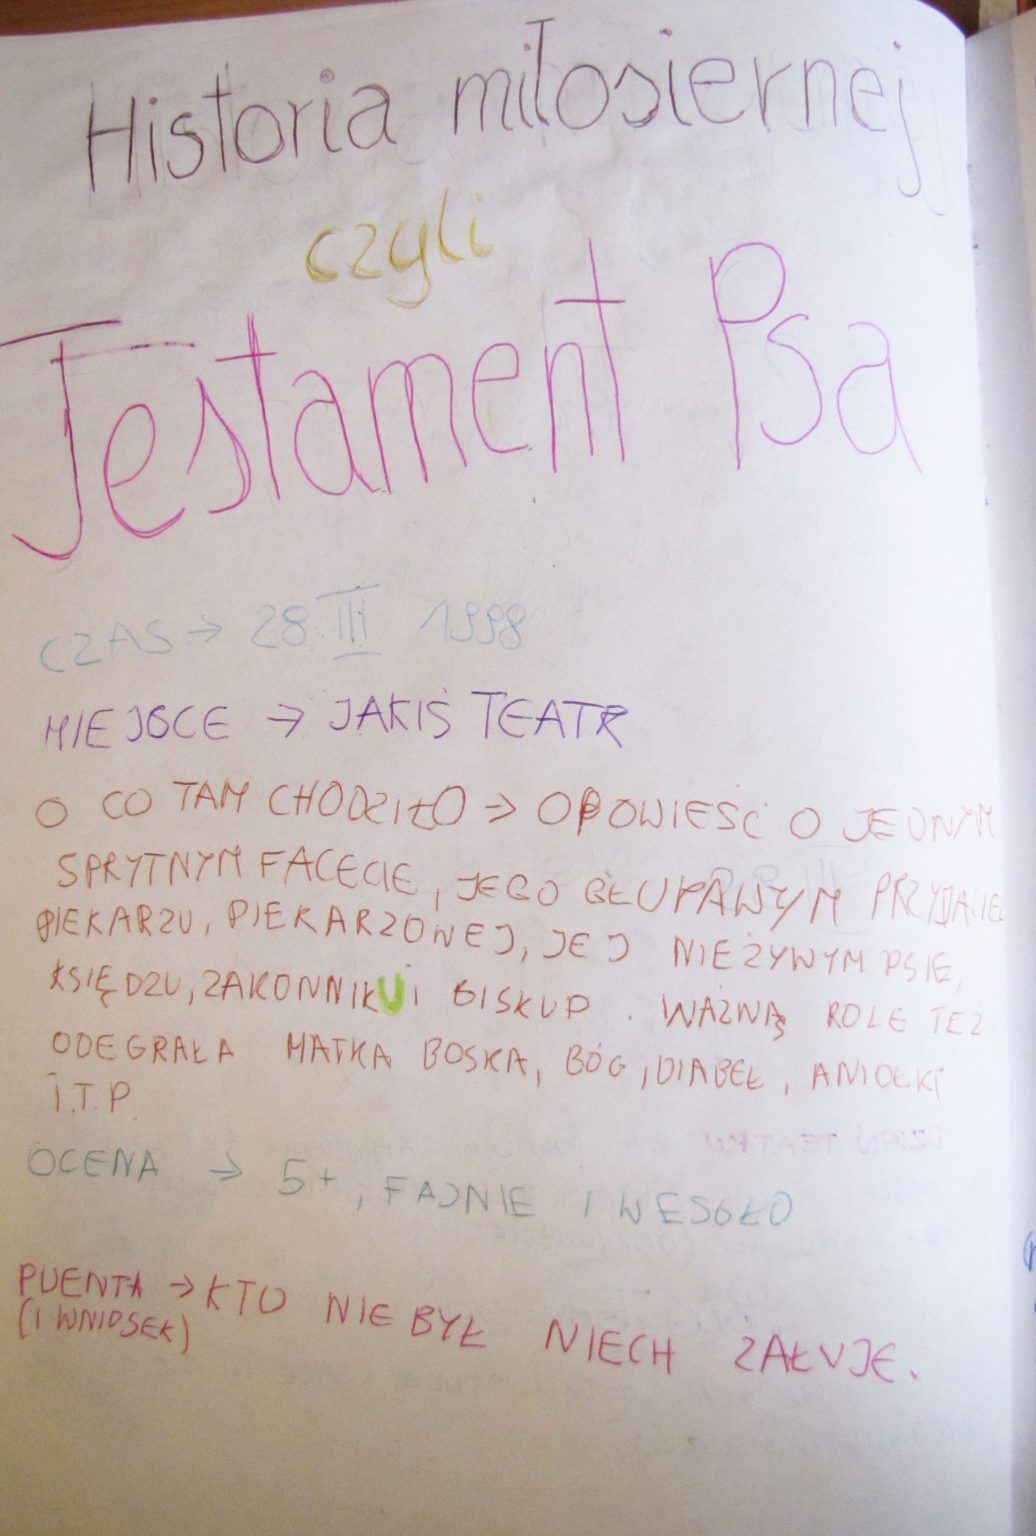 Historia miłosiernej
czyli
Testament Psa
CZAS → 28 III 1998
MIEJSCE → JAKIŚ TEATR
O CO TAM CHODZIŁO → OPOWIEŚĆ O JEDNYM
SPRYTNYM FACECIE, JEGO GŁUPAWYM PRZYJACIEL
PIEKARZU, PIEKARZOWEJ, JEJ NIEŻYWYM PSIE,
KSIĘDZU, ZAKONNIKU i BISKUP. WAŻNĄ ROLE TEŻ
ODEGRAŁA MATKA BOSKA, BÓG, DIABEŁ, ANIOŁKI
i.T.P.
OCENA → 5+, FAJNIE I WESOŁO
PUENTA → KTO NIE BYŁ NIECH ŻAŁUJE.
(I WNIOSEK)